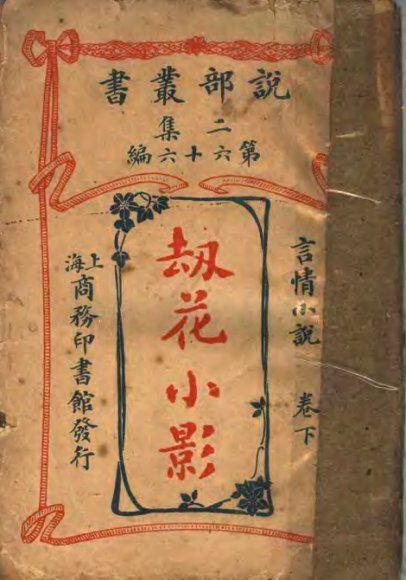 說部叢書
二集
第六十六編
言情小說 卷下
刼花小影
上海商務印書館發行